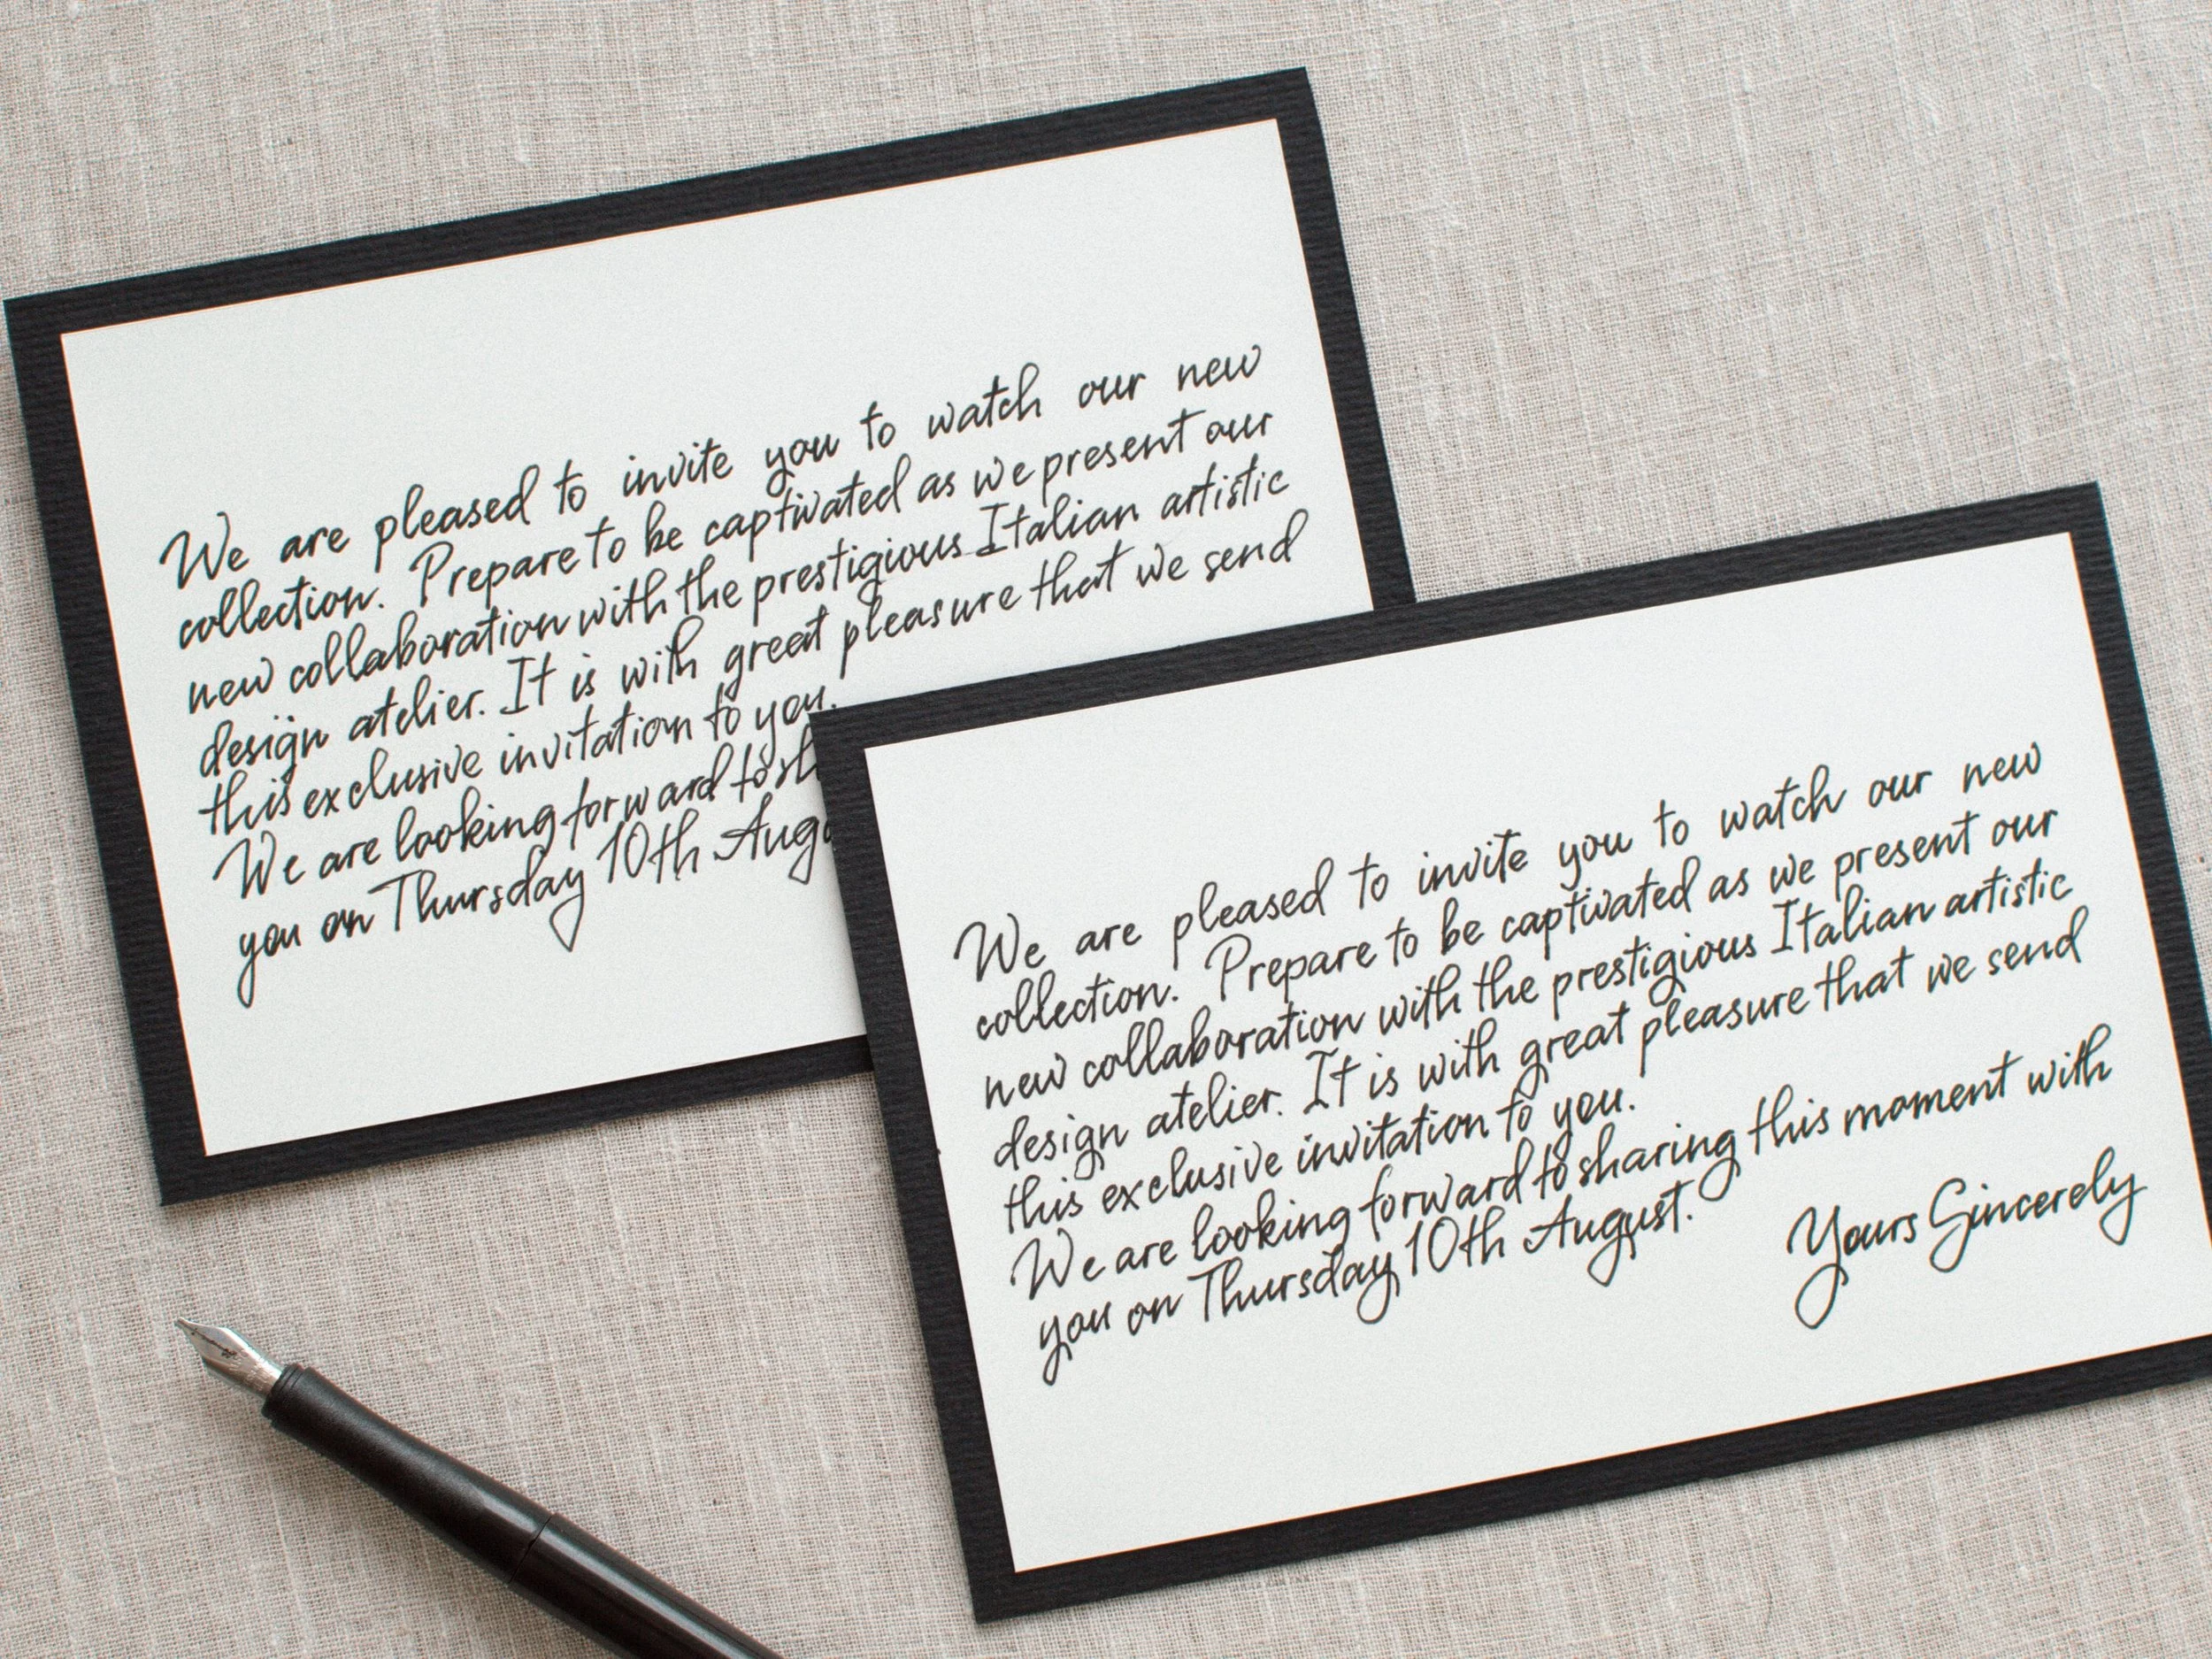 We are pleased to invite you to watch our new
collection. Prepare to be captivated as we present our
new collaboration with the prestigious Italian artistic
design atelier. It is with great pleasure that we send
this exclusive invitation to you.
We are looking forward to sh
you on Thursday 10th Augu
We are pleased to invite you to watch our new
collection. Prepare to be captivated as we present our
new collaboration with the prestigious Italian artistic
design atelier. It is with great pleasure that we send
this exclusive invitation to you.
We are looking forward to sharing this moment with
you on Thursday 10th August.
Yours Sincerely